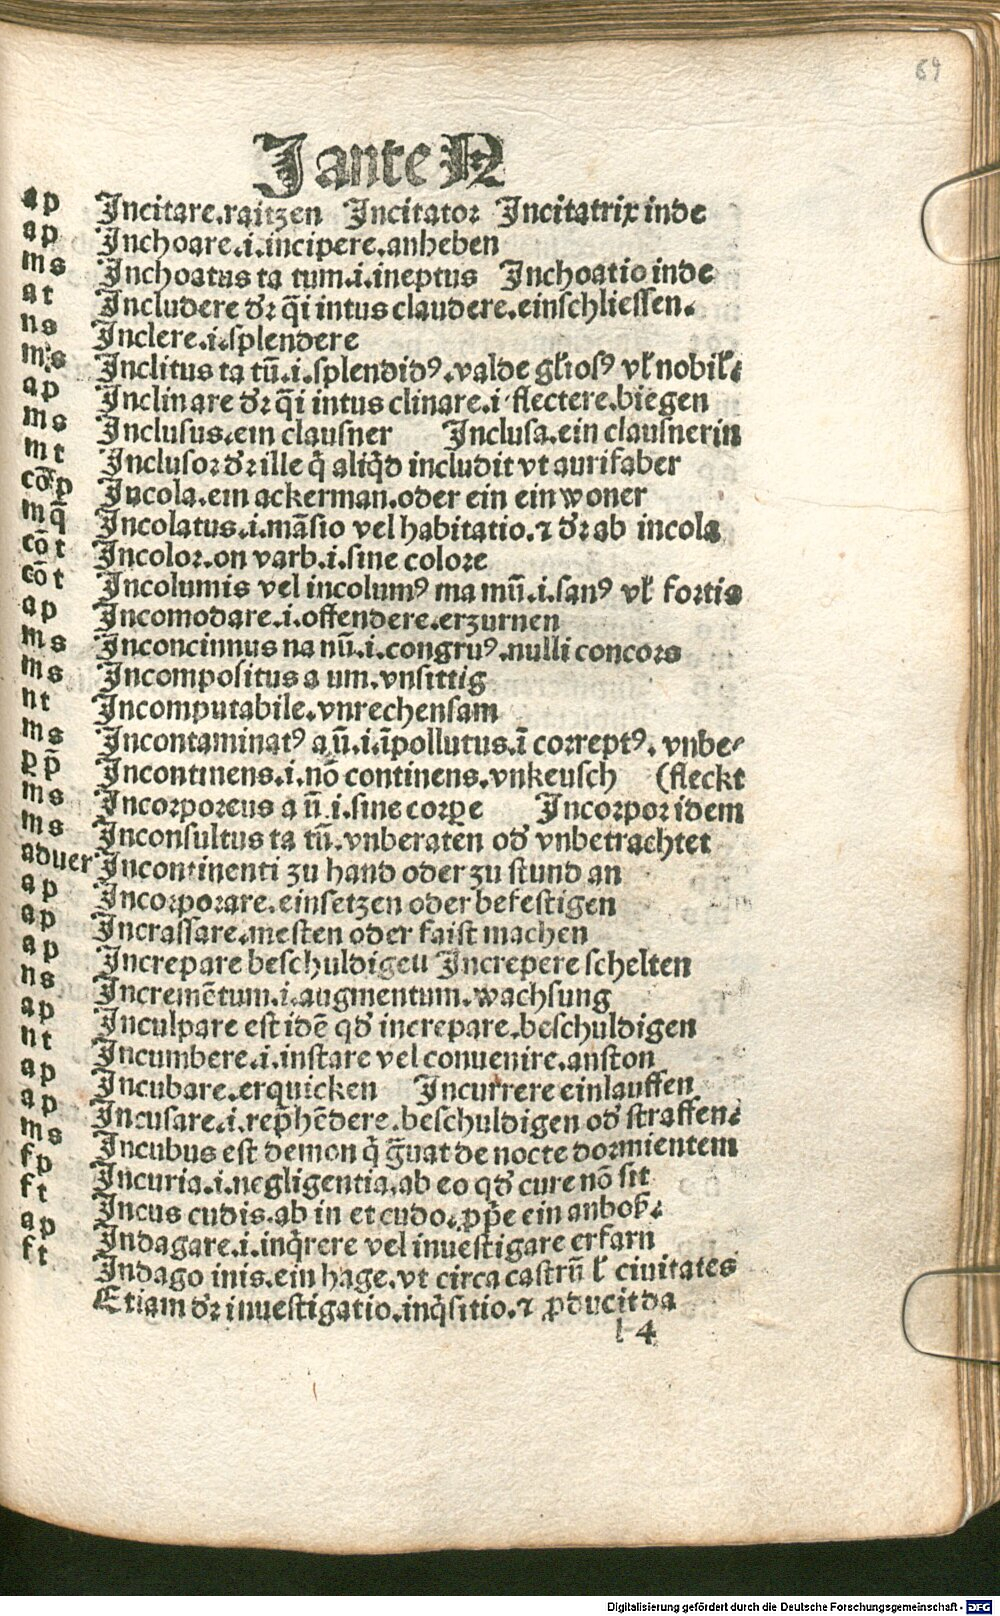 69
I ante N
ap Incitare.raitzen Incitator Incitatrix inde
ap Inchoare.i.incipere.anheben
ms Inchoatus ta tum.i.ineptus Inchoatio inde
at Includere dr̄ q̄i intus claudere.einschliessen.
ns Inclere.i.splendere
ms Inclitus ta tū.i.splendidꝰ.valde gl̄iosꝰ vl̄ nobil̄.
ap Inclinare dr̄ q̄i intus clinare.i flectere.biegen
ms Inclusus.ein clausner Inclusa.ein clausnerin
mt Inclusor dr̄ ille q̄ aliq̄d includit vt aurifaber
cōp Incola.ein ackerman.oder ein einwoner
mq̄ Incolatus.i.māsio vel habitatio.⁊ dr̄ ab incola
cōt Incolor.on varb.i.sine colore
cōt Incolumis vel incolumꝰ ma mū.i.sanꝰ vl̄ fortis
ap Incomodare.i.offendere.erzurnen
ms Inconcinnus na nū.i.congruꝰ.nulli concors
ms Incompositus a um.vnsittig
nt Incomputabile.vnrechensam
ms Incontaminatꝰ a ū.i.īpollutus.ī correptꝰ.vnbe-
pp̄ Incontinens.i.nō continens.vnkeusch (fleckt
ms Incorporeus a ū.i.sine corꝑe Incorpor idem
ms Inconsultus ta tū.vnberaten od' vnbetrachtet
aduer Incontinenti zu hand oder zu stund an
ap Incorporare.einsetzen oder befestigen
ap Incrassare.mesten oder faist machen
ap Increpare beschuldigeu Increpere schelten
ns Incremētum.i.augmentum.wachsung
ap Inculpare est idē qd' increpare.beschuldigen
nt Incumbere.i.instare vel conuenire.anston
ap Incubare.erquicken Incurrere einlauffen
ap Incusare.i.rep̄hēdere.beschuldigen od' straffen.
ms Incubus est demon q̄ ḡuat de nocte dormientem
fp Incuria.i.negligentia.ab eo qd' cure nō sit
ft Incus cudis.ab in et cudo.ꝓp̄e ein anboß.
ap Indagare.i.inq̄rere vel inuestigare erfarn
ft Indago inis.ein hage.vt circa castrū l̄ ciuitates
Etiam dr̄ inuestigatio.inq̄sitio.⁊ ꝓducit da
l 4
Digitalisierung gefördert durch die Deutsche Forschungsgemeinschaft - DFG